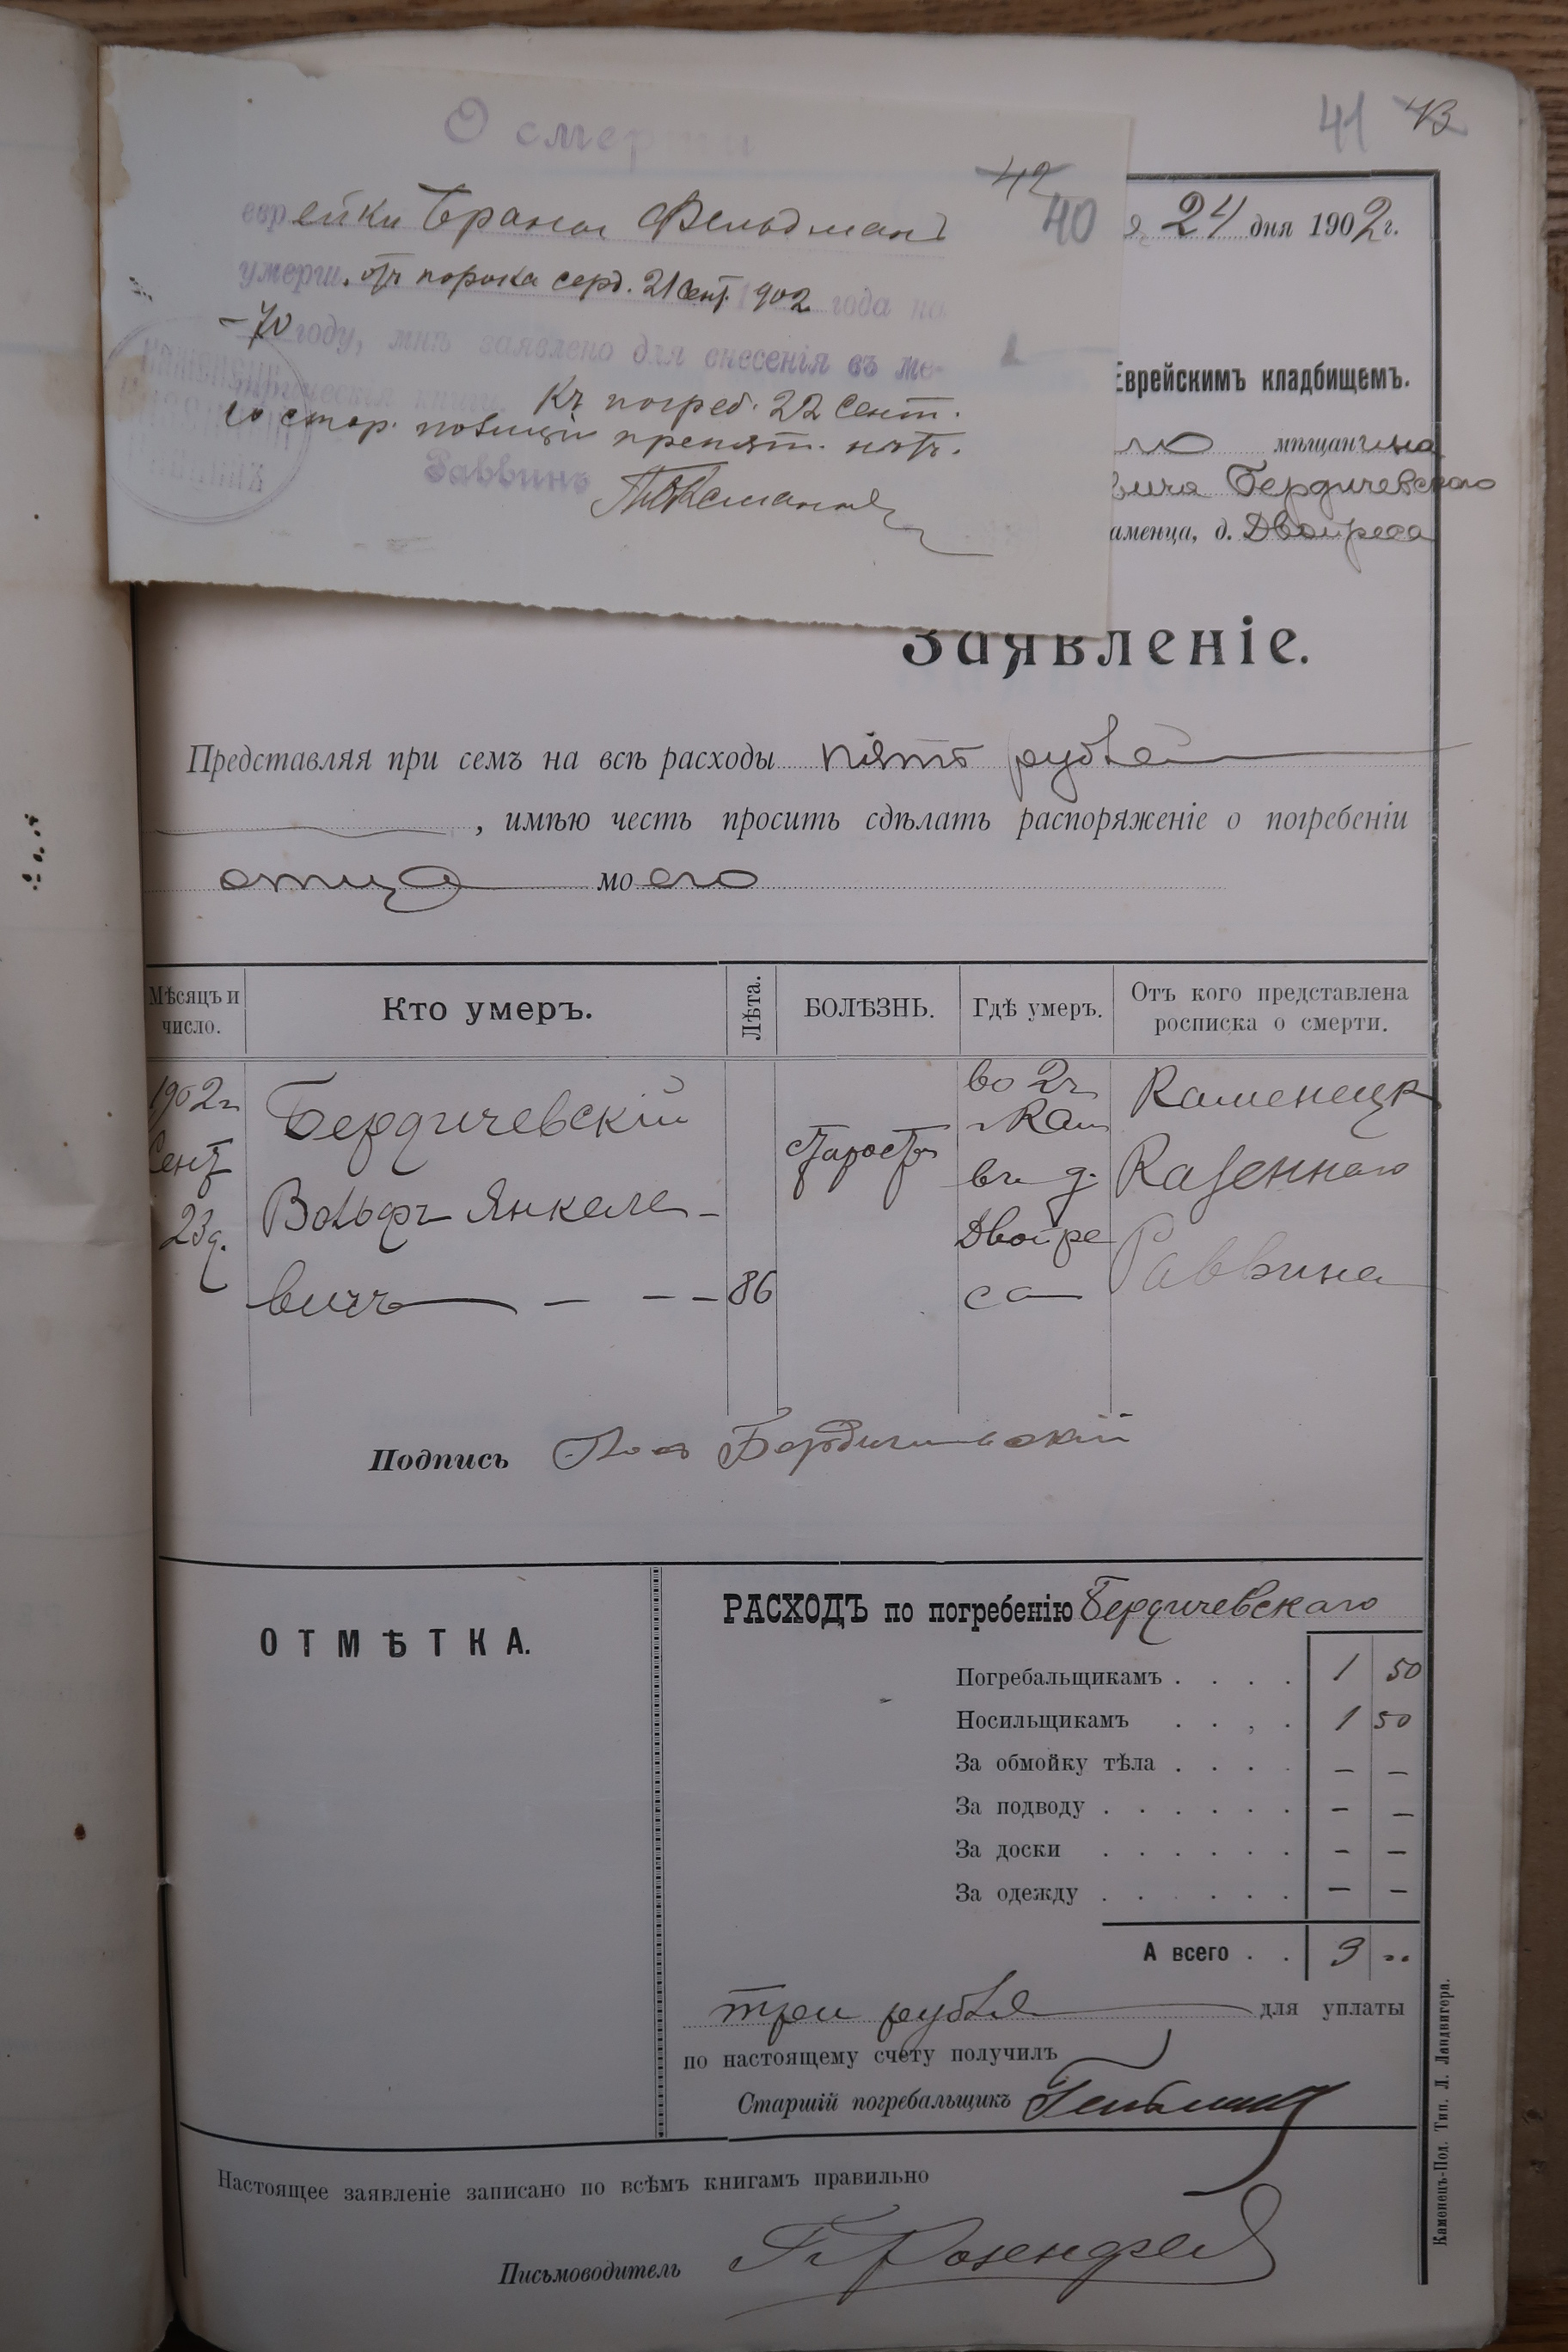 О смерти
42
40
еврейки Браны Фельдманъ
умерш. отъ порока серд. 21 Сент. 1902 года на
-70 году, мнѣ заявлено для внесенія въ ме-
трическія книги. Къ погреб. 22 Сент.
со стор. полиціи препят. нѣтъ.
Раввинъ
41 43
24 дня 1902 г.
Еврейскимъ кладбищемъ.
мѣщанина
вича Бердичевскаго
аменца, д. Двойреса
Заявленіе.
Представляя при семъ на всѣ расходы пять рублей
, имѣю честь просить сдѣлать распоряженіе о погребеніи
отца моего
Мѣсяцъ и число.
Кто умеръ.
Лѣта.
БОЛѢЗНЬ.
Гдѣ умеръ.
Отъ кого представлена росписка о смерти.
1902 г. Сент 23 д.
Бердичевскій
Вольфъ Янкеле-
вичъ — — — —
86
старость
во 2 ч
г. Кам
въ д.
Двойре
са
Каменецк
Казеннаго
Раввина
Подпись Бердичевскій
ОТМѢТКА.
РАСХОДЪ по погребенію Бердичевскаго
Погребальщикамъ . . . . 1 50
Носильщикамъ . . , . 1 50
За обмойку тѣла . . . . – –
За подводу . . . . . . – –
За доски . . . . . . – –
За одежду . . . . . . – –
А всего . . 3 ..
три рубля для уплаты
по настоящему счету получилъ
Старшій погребальщикъ
Настоящее заявленіе записано по всѣмъ книгамъ правильно
Письмоводитель Г. Розенфельд
Каменецъ-Под. Тип. Л. Ландвигера.